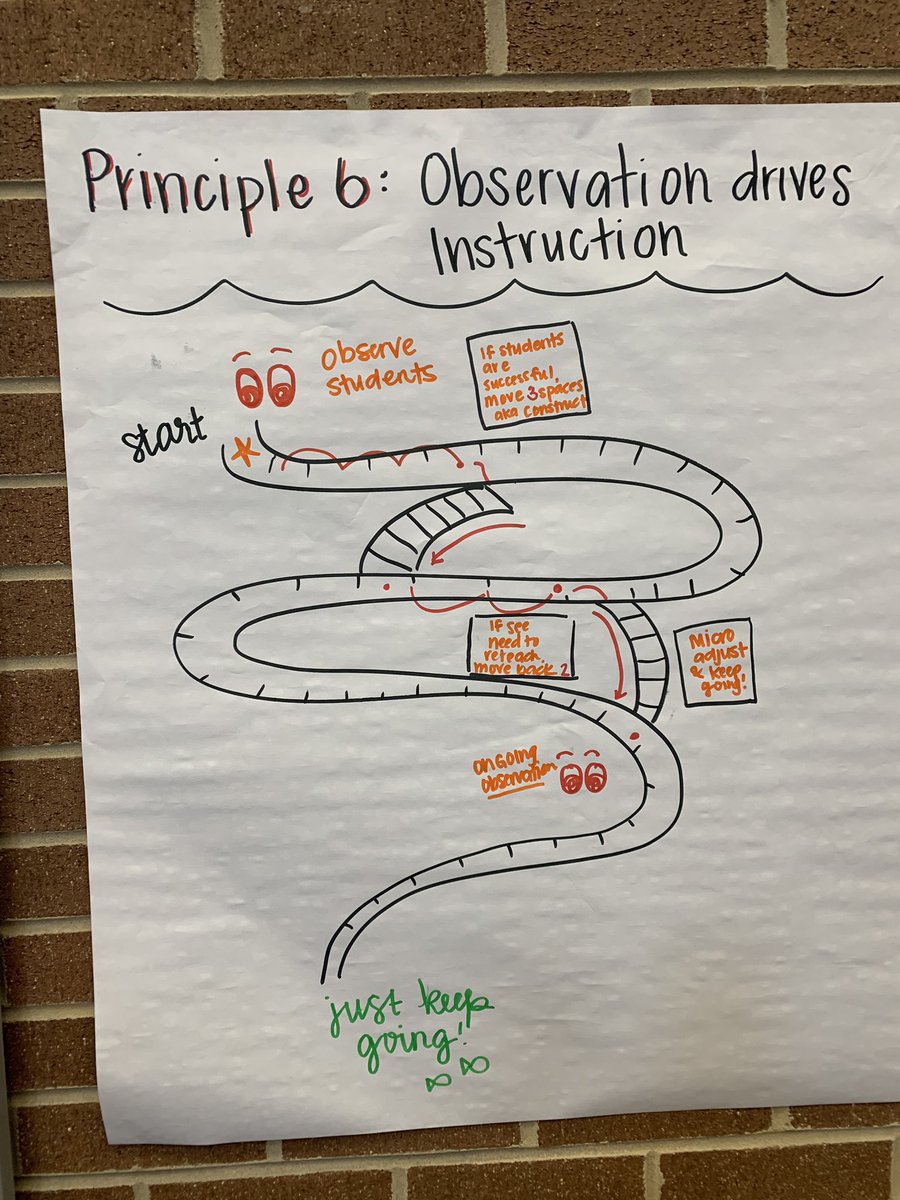 Principle 6: Observation drives
Instruction
observe
students
If students
are
successful,
move 3 spaces
aka construct
start
If see
need to
reteach,
move back 2
Micro
adjust
& keep
going!
ongoing
observation
just keep
going!